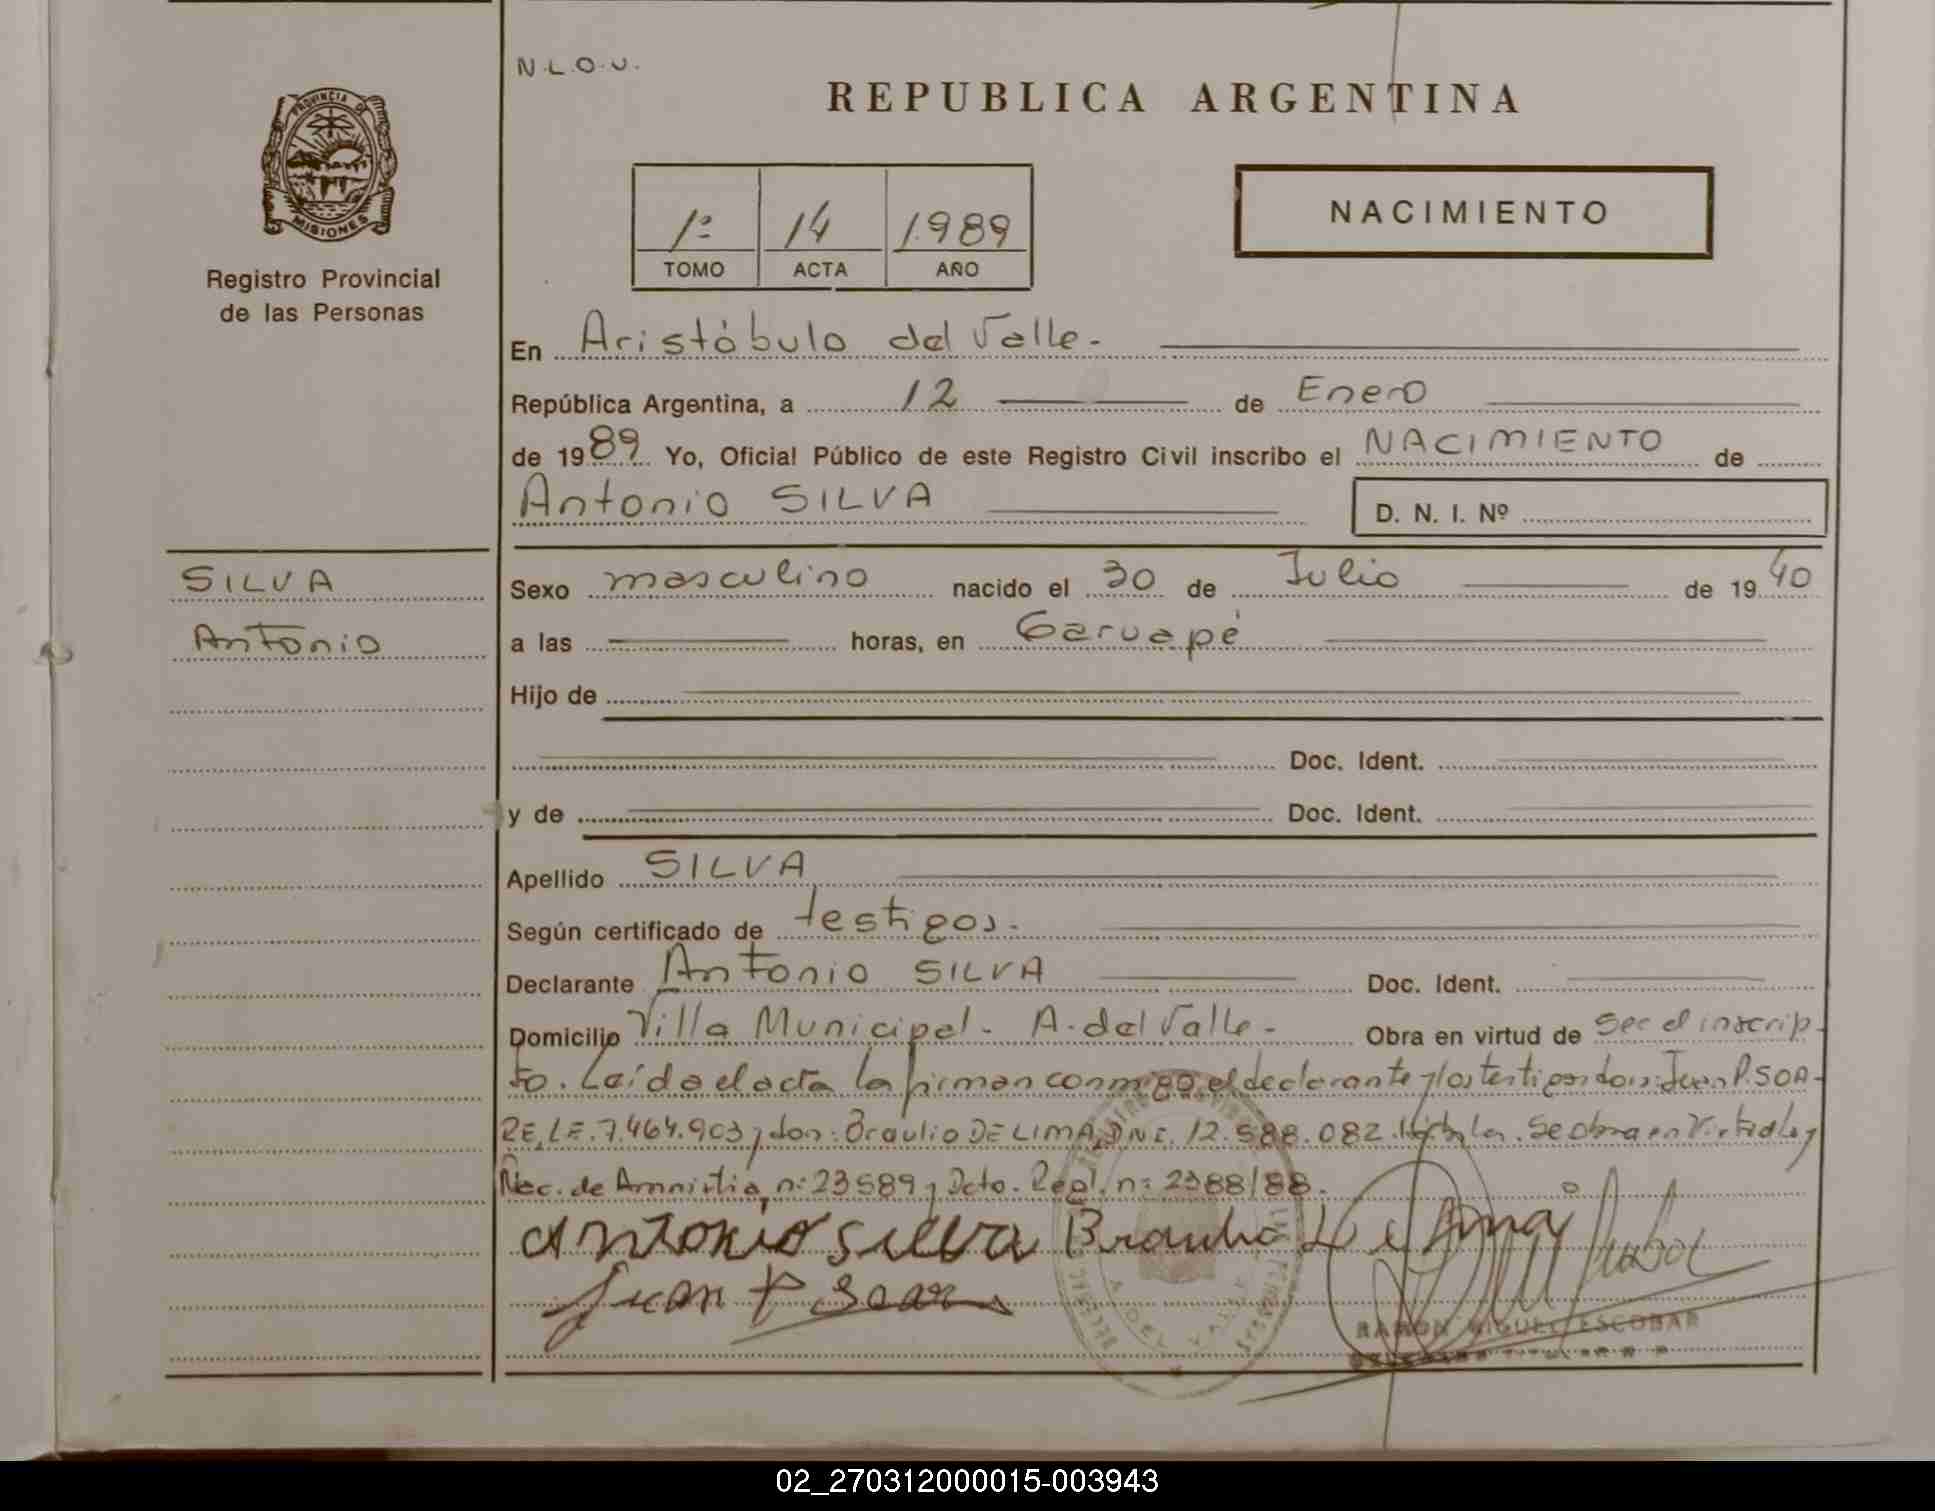 N.L.O.U.
REPUBLICA ARGENTINA
PROVINCIA DE
MISIONES
Registro Provincial
de las Personas
1º 14 1989
TOMO ACTA AÑO
NACIMIENTO
En Aristóbulo del Valle.-
República Argentina, a 12 de Enero
de 1989 Yo, Oficial Público de este Registro Civil inscribo el NACIMIENTO de
Antonio SILVA D. N. I. Nº
SILVA
Antonio
Sexo masculino nacido el 30 de Julio de 1940
a las horas, en Garuapé
Hijo de
Doc. Ident.
y de Doc. Ident.
Apellido SILVA
Según certificado de testigos.-
Declarante Antonio SILVA Doc. Ident.
Domicilio Villa Municipal.- A. del Valle.- Obra en virtud de ser el inscrip-
to. Leída el acta la firman conmigo el declarante y los testigos don: Juan P. SOA-
RE, L.E. 7.464.903 y don: Braulio DE LIMA, DNI. 12.588.082. Se obra en Virtud Ley
Nac. de Amnistía n: 23589 y Dcto. Regl. n: 2388/88.
Antonio silva Braulio De Lima
Juan P Soare
RAMON MIGUEL ESCOBAR
02_270312000015-003943